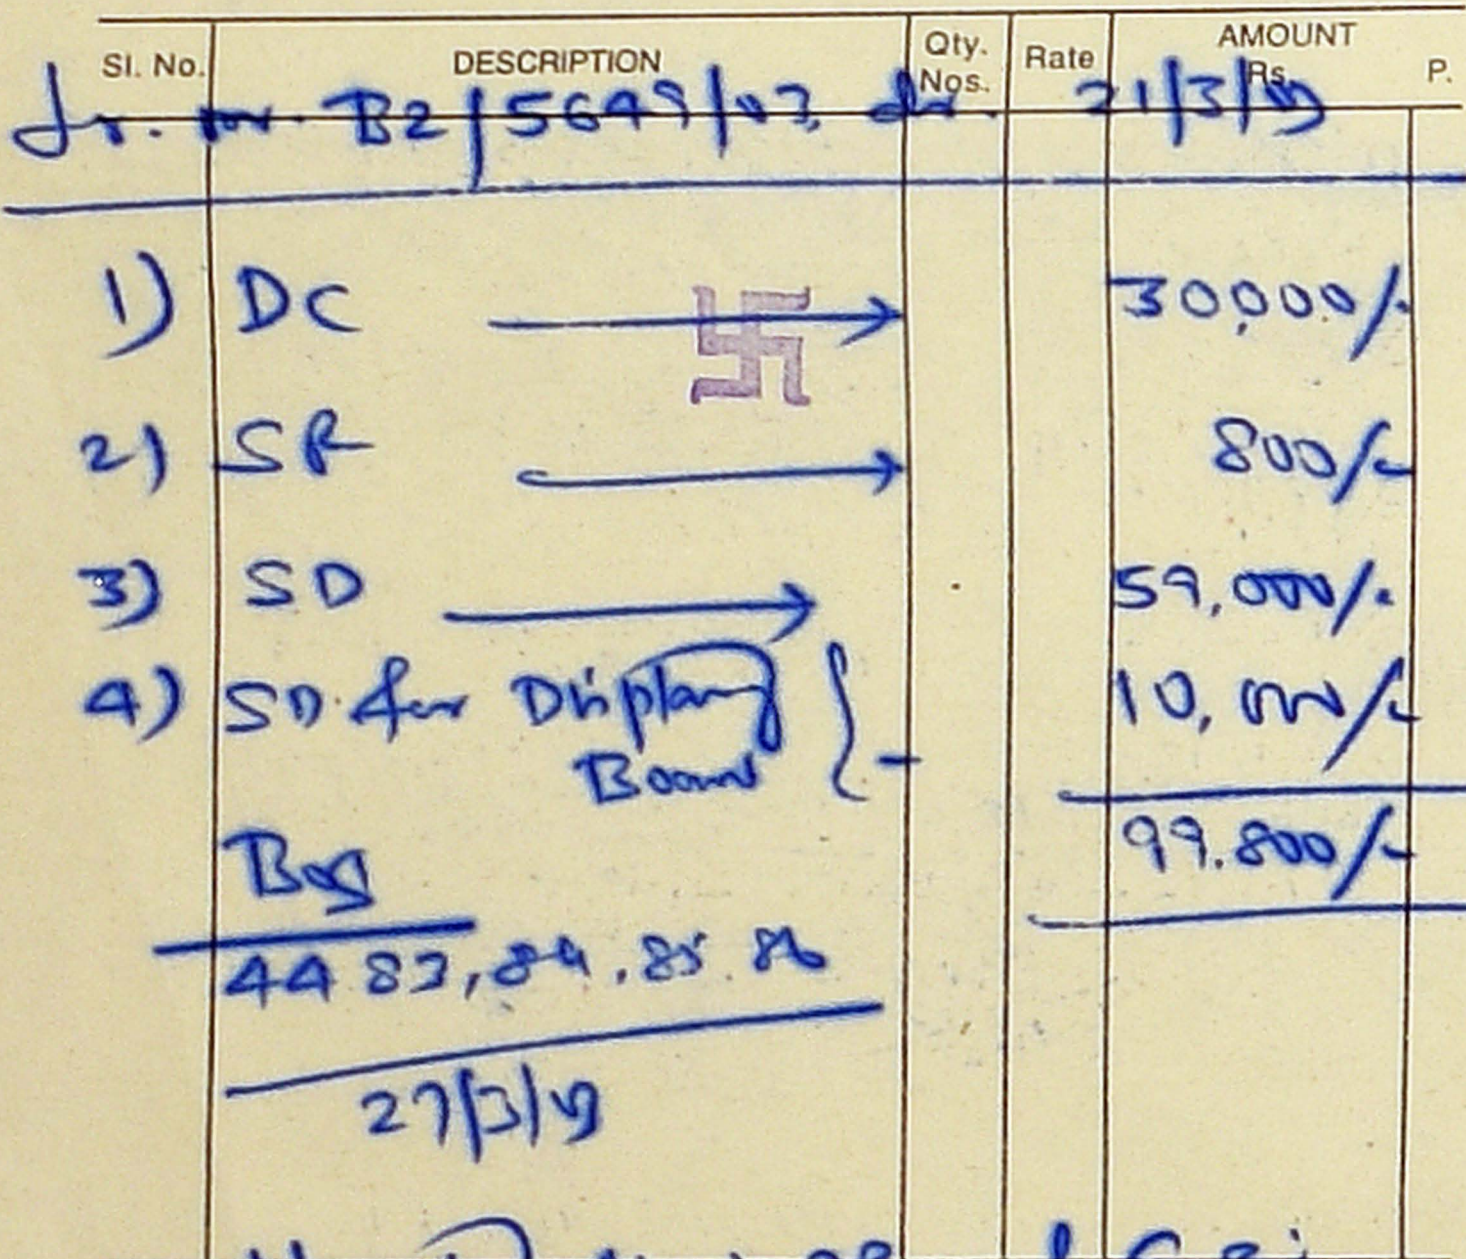 Sl. No. DESCRIPTION Qty. Nos. Rate AMOUNT Rs. P.
B2/5649/03, dr. 21/3/19
1) DC 30,000/-
2) SR 800/-
3) SD 59,000/-
4) SD for Display 10,000/-
Board
99.800/-
4483, 84, 85 86
27/3/19